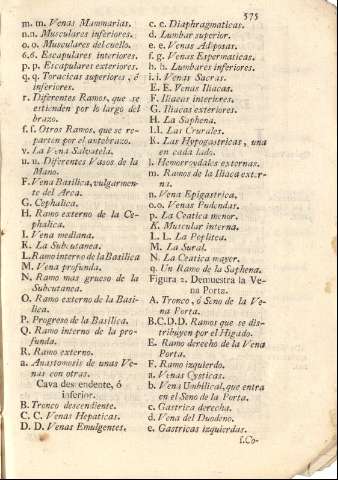 575
m. m. Venas Mammarias.
n.n. Musculares inferiores.
o. o. Musculares del cuello.
6.6. Escapulares interiores.
p. p. Escapulares exteriores.
q. q. Toracicas superiores, é
inferiores.
r. Diferentes Ramos, que se
estienden por lo largo del
brazo.
s. s. Otros Ramos, que se re-
parten por el antebrazo.
v. La Vena Salvatela.
u. u. Diferentes Vasos de la
Mano.
F. Vena Basilica, vulgarmen-
te del Arca.
G. Cephalica.
H. Ramo externo de la Ce-
phalica.
I. Vena mediana.
K. La Subcutanea.
L. Ramo interno de la Basilica
M. Vena profunda.
N. Ramo mas grueso de la
Subcutanea.
O. Ramo externo de la Basi-
lica.
P. Progreso de la Basilica.
Q. Ramo interno de la pro-
funda.
R. Ramo externo.
a. Anastomosis de unas Ve-
nas con otras.
Cava descendente, ó
inferior.
B. Tronco descendiente.
C. C. Venas Hepaticas.
D. D. Venas Emulgentes.
c. c. Diaphragmaticas.
d. Lumbar superior.
e. e. Venas Adiposas.
f. g. Venas Espermaticas.
h. h. Lumbares inferiores.
i. i. Venas Sacras.
E. E. Venas Iliacas.
F. Iliacas interiores.
G. Iliacas exteriores.
H. La Saphena.
I.I. Las Crurales.
K. Las Hypogastricas, una
en cada lado.
l. Hemorroydales externas.
m. Ramos de la Iliaca exter-
na.
n. Vena Epigastrica.
o.o. Venas Pudendas.
p. La Ceatica menor.
K. Muscular interna.
L. L. La Poplitea.
M. La Sural.
N. La Ceatica mayor.
q. Un Ramo de la Saphena.
Figura 2. Demuestra la Ve-
na Porta.
A. Tronco, ó Seno de la Ve-
na Porta.
B.C.D.D. Ramos que se dis-
tribuyen por el Higado.
E. Ramo derecho de la Vena
Porta.
F. Ramo izquierdo.
a. Venas Cysticas.
b. Vena Umbilical, que entra
en el Seno de la Porta.
c. Gastrica derecha.
d. Vena del Duodeno.
e. Gastricas izquierdas.
f. Co-